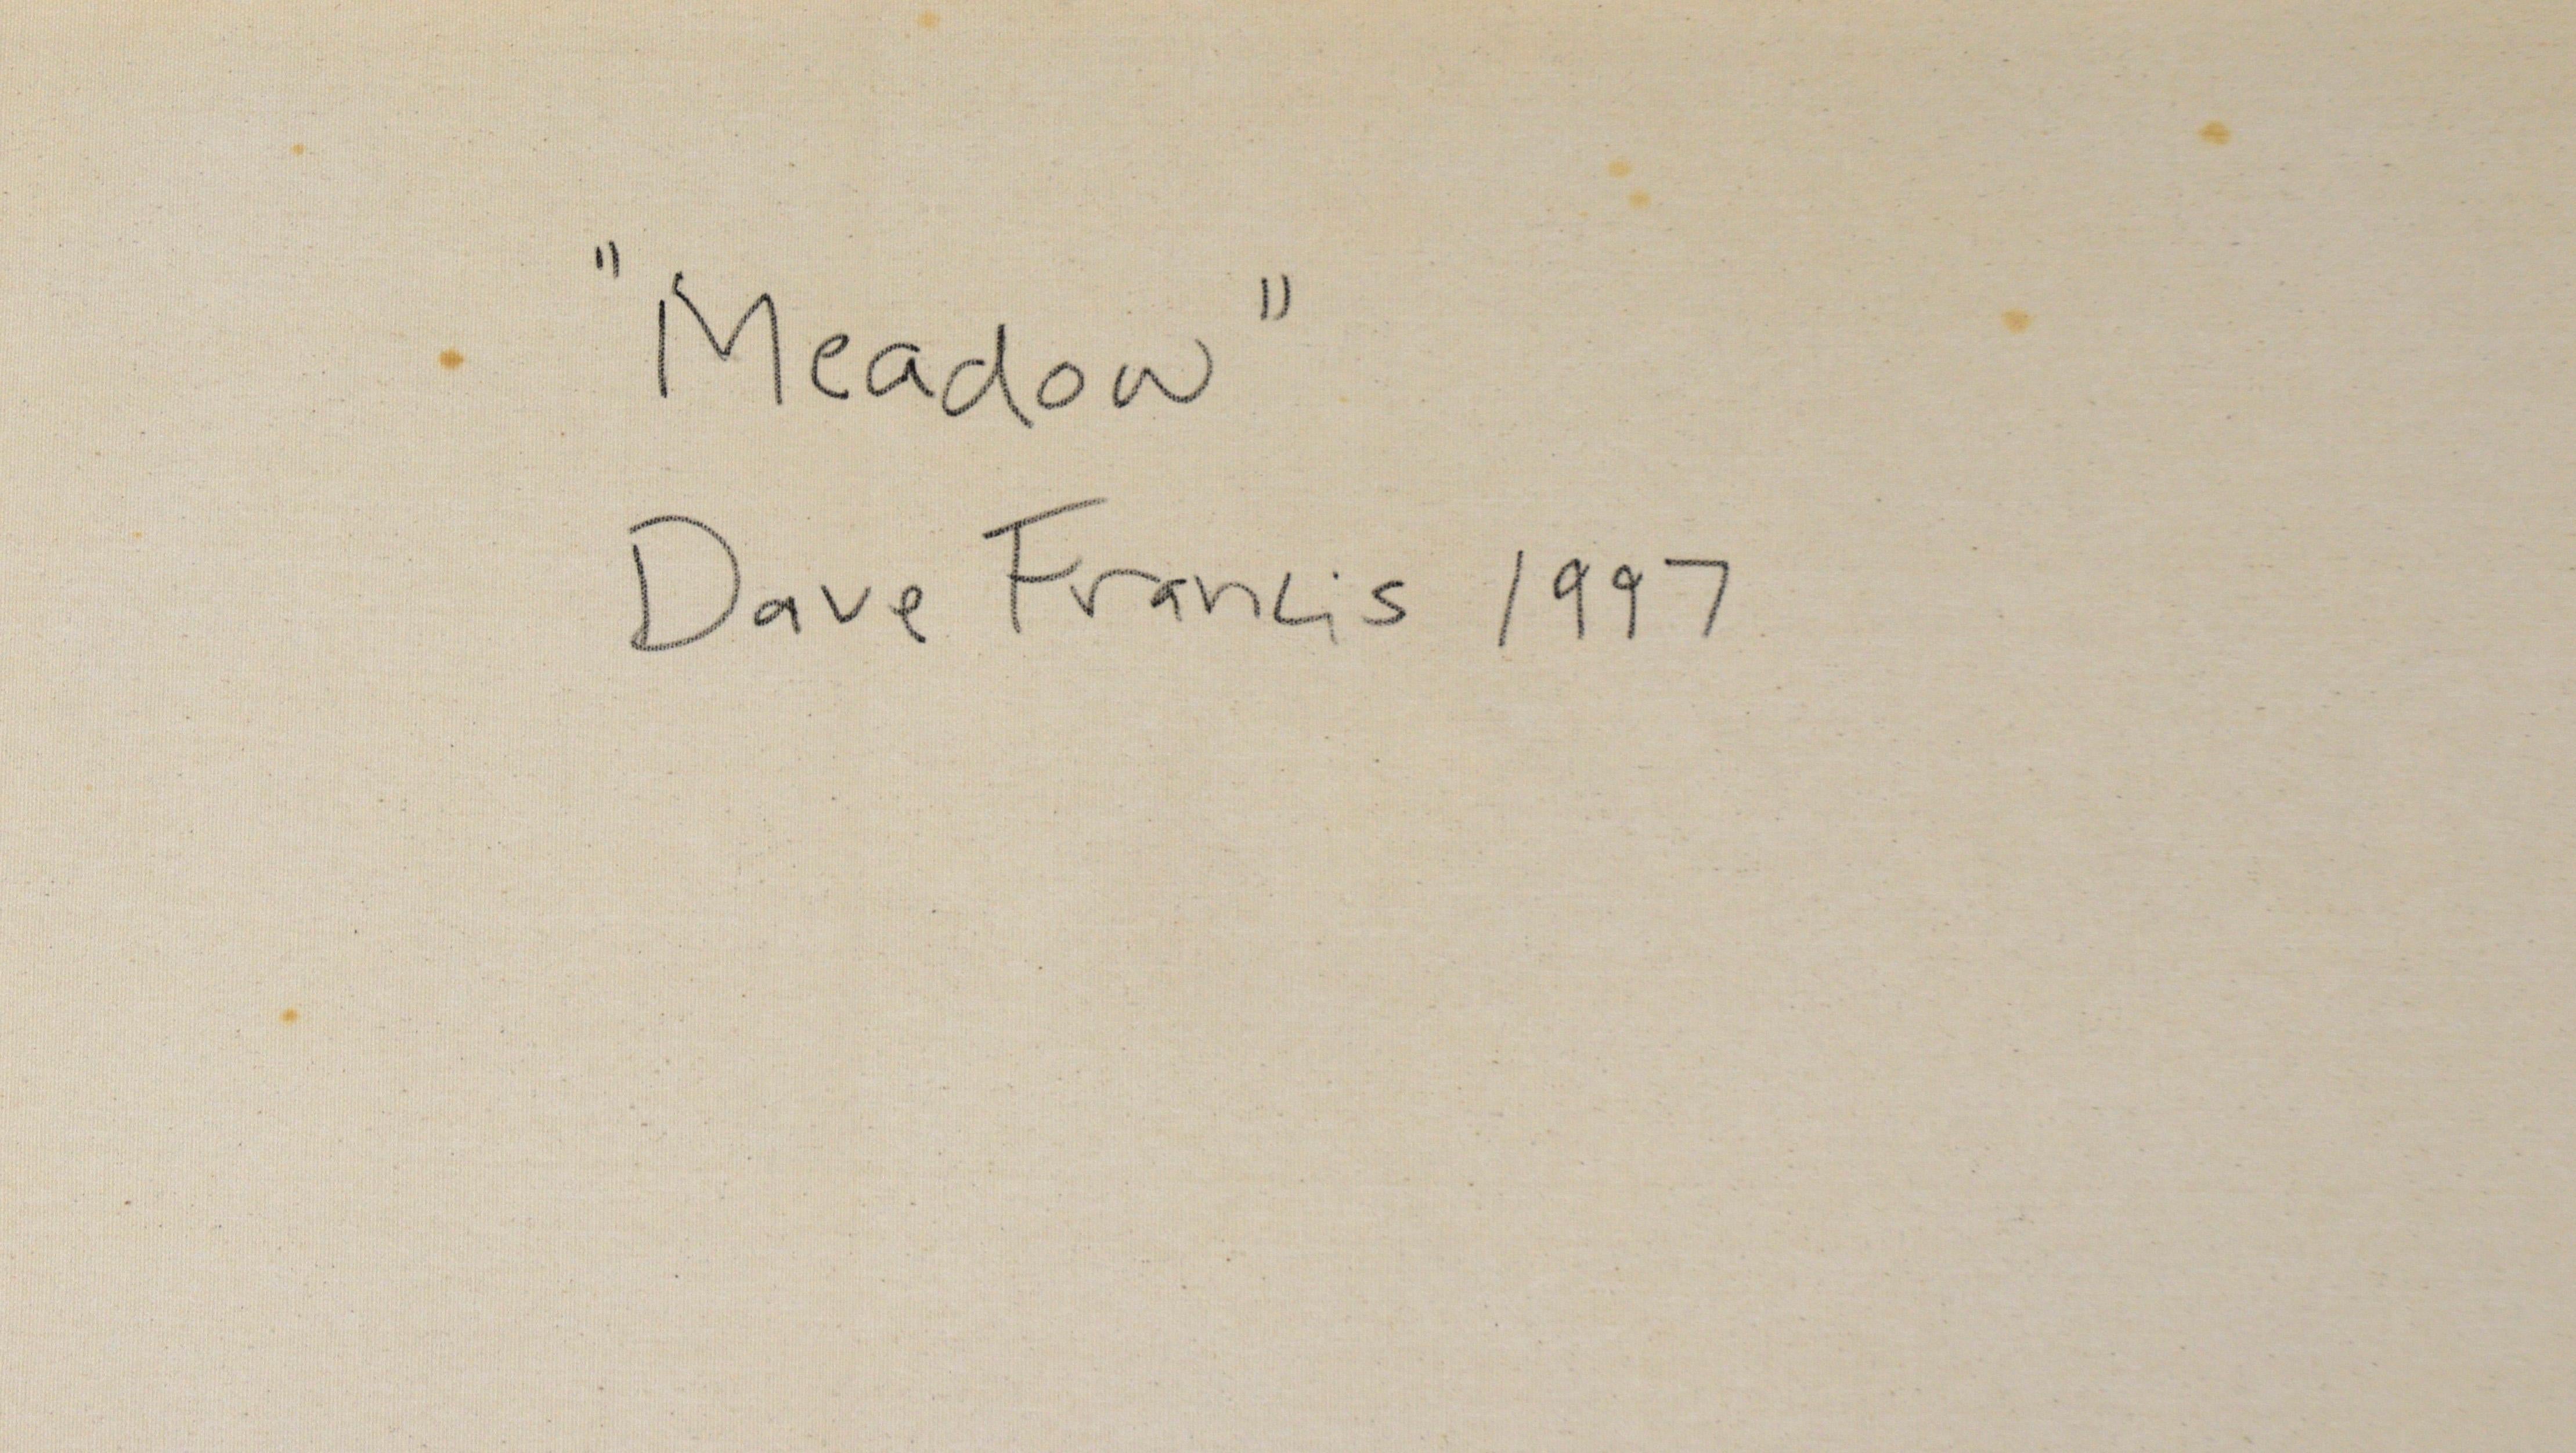 "Meadow"
Dave Francis 1997